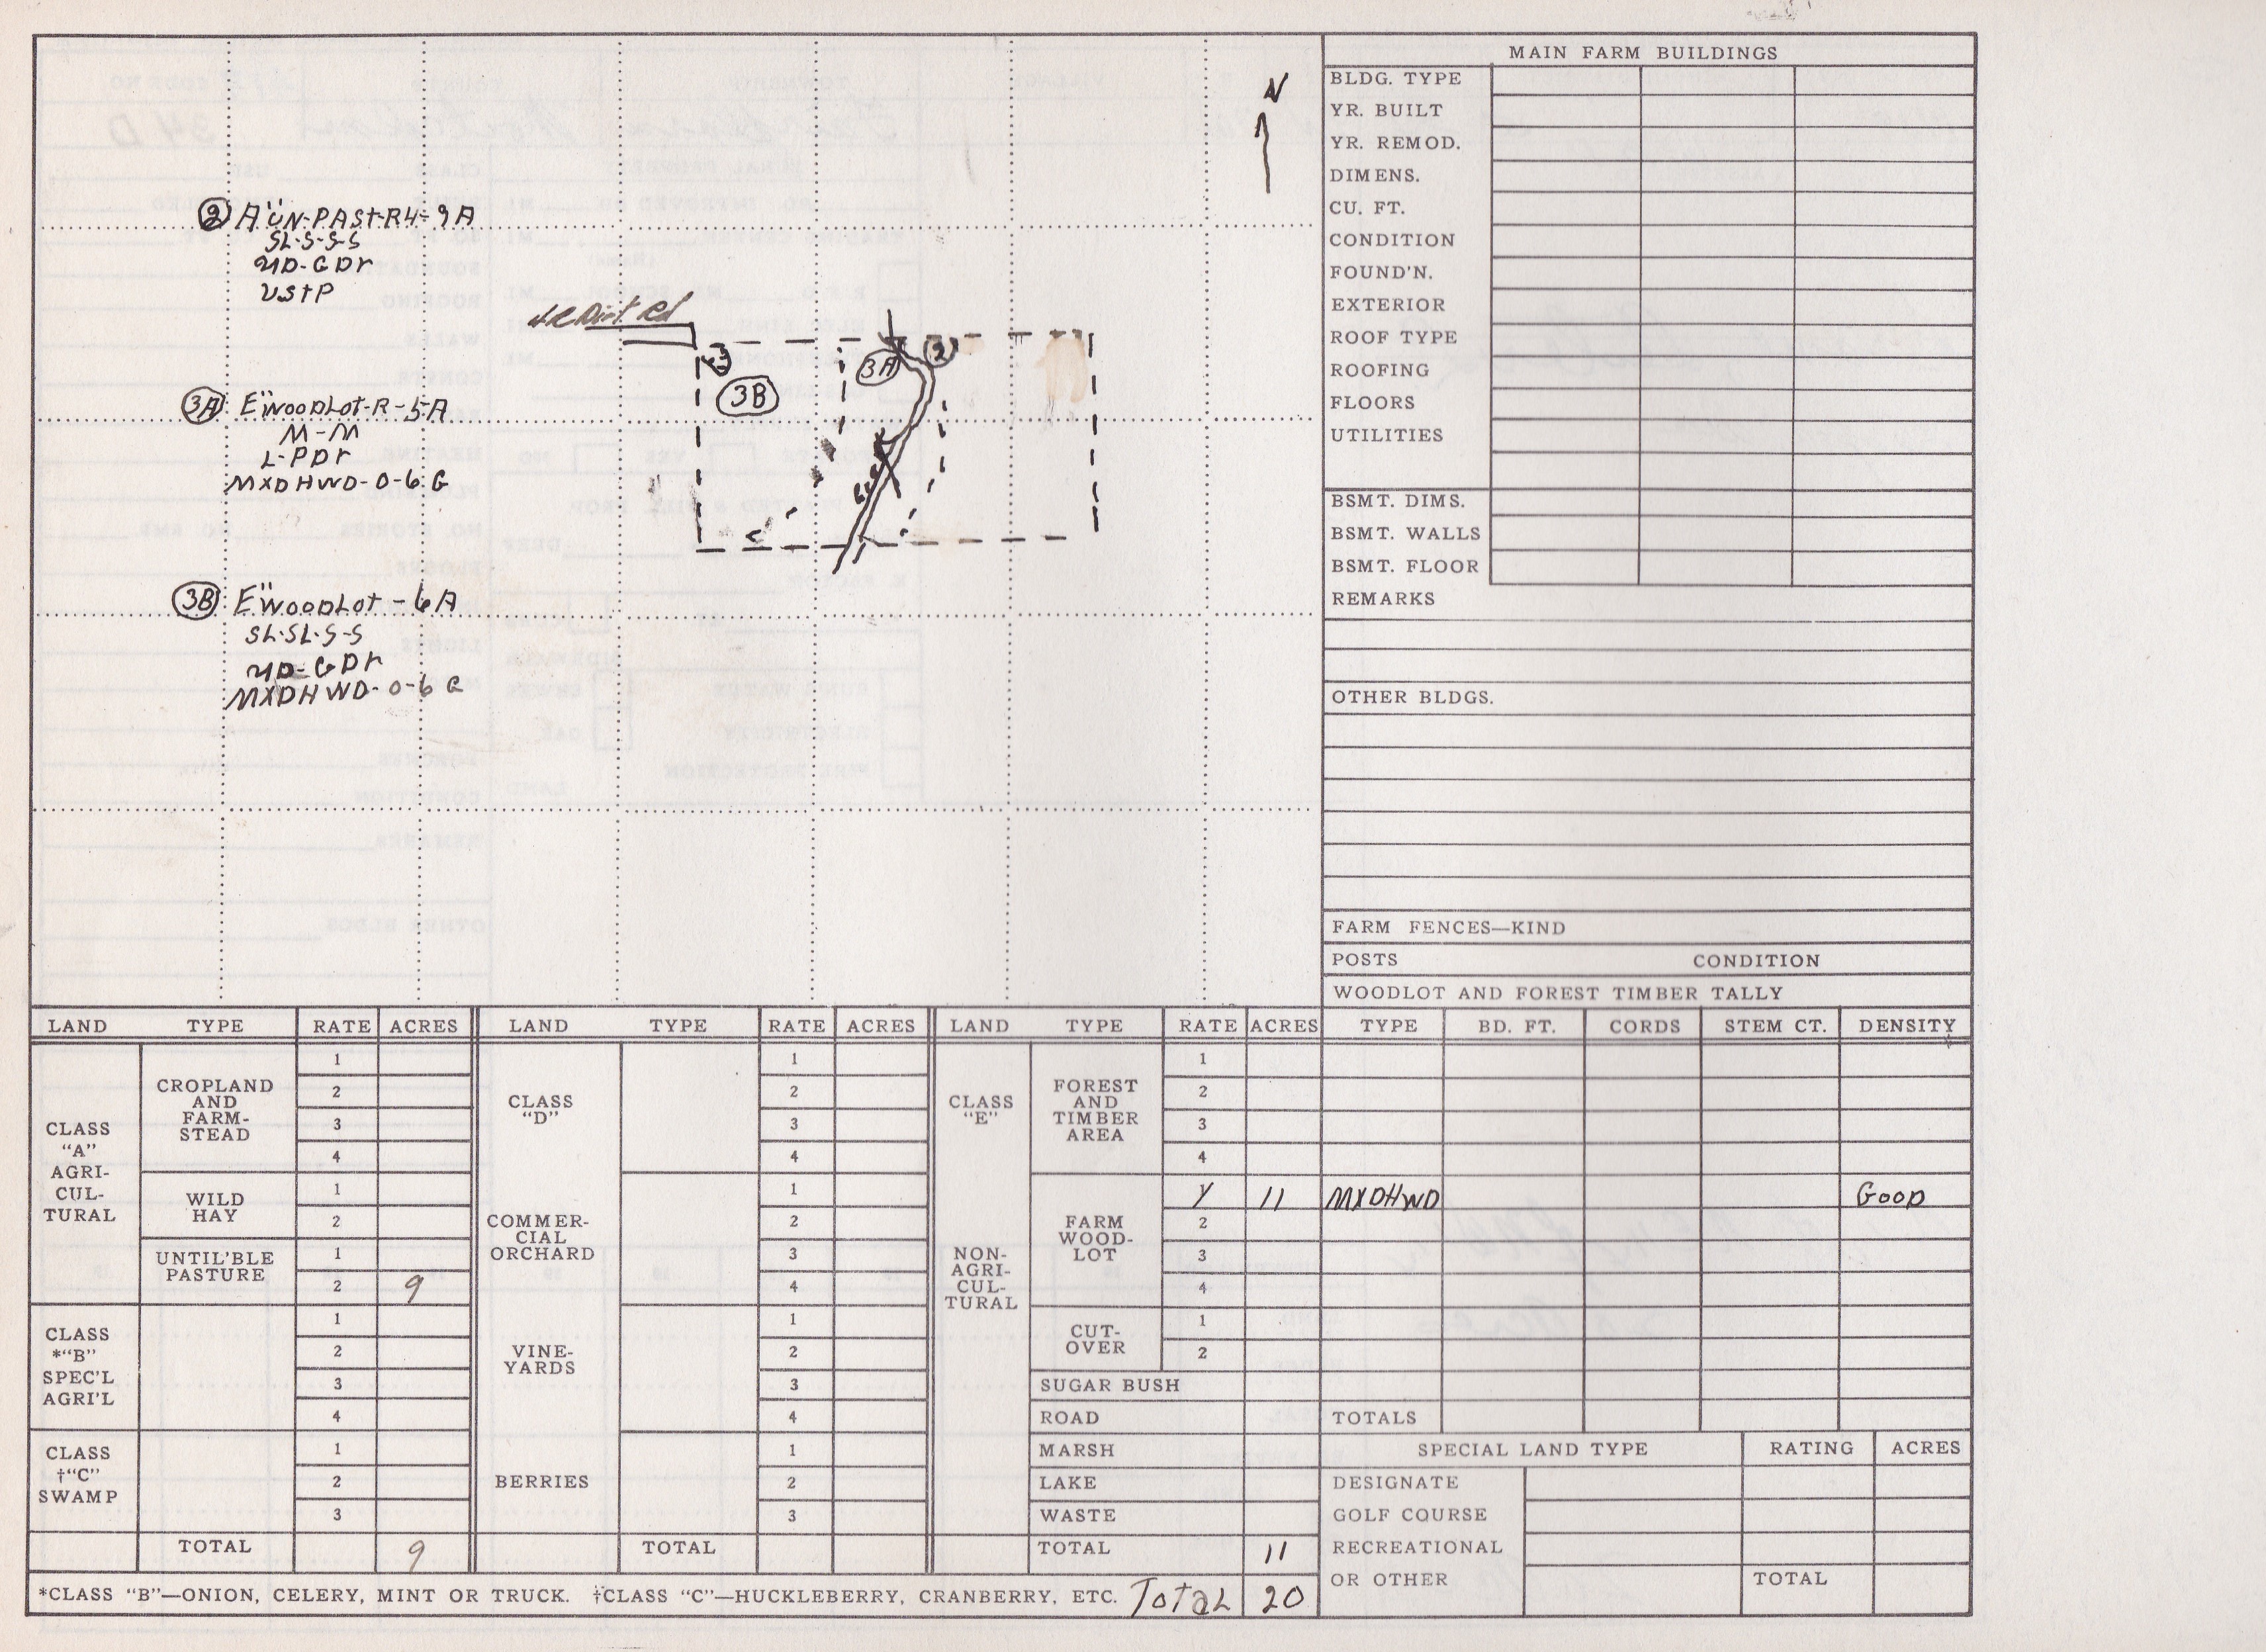 N
② A"UN-PAST-R4-9A
SL-S-S-S
UD-GDr
UStP
Dirt Rd
3B
3A
2
3A E"WOODLOT-R-5A
M-M
L-PDr
MXDHWD-0-6 G
3B E"WOODLOT-6A
SL-SL-S-S
UD-GDr
MXDHWD-0-6 G
MAIN FARM BUILDINGS
BLDG. TYPE
YR. BUILT
YR. REMOD.
DIMENS.
CU. FT.
CONDITION
FOUND'N.
EXTERIOR
ROOF TYPE
ROOFING
FLOORS
UTILITIES
BSMT. DIMS.
BSMT. WALLS
BSMT. FLOOR
REMARKS
OTHER BLDGS.
FARM FENCES—KIND
POSTS CONDITION
WOODLOT AND FOREST TIMBER TALLY
LAND TYPE RATE ACRES LAND TYPE RATE ACRES LAND TYPE RATE ACRES TYPE BD. FT. CORDS STEM CT. DENSITY
CLASS
"A"
AGRI-
CUL-
TURAL
CROPLAND
AND
FARM-
STEAD
1
2
3
4
WILD
HAY
1
2
UNTIL'BLE
PASTURE
1
2 9
CLASS
*"B"
SPEC'L
AGRI'L
1
2
3
4
CLASS
†"C"
SWAMP
1
2
3
TOTAL 9
CLASS
"D"
1
2
3
4
COMMER-
CIAL
ORCHARD
1
2
3
4
VINE-
YARDS
1
2
3
4
BERRIES
1
2
3
TOTAL
CLASS
"E"
NON-
AGRI-
CUL-
TURAL
FOREST
AND
TIMBER
AREA
1
2
3
4
FARM
WOOD-
LOT
1 11 MXDHWD GOOD
2
3
4
CUT-
OVER
1
2
SUGAR BUSH
ROAD
MARSH
LAKE
WASTE
TOTAL 11
TOTALS
SPECIAL LAND TYPE RATING ACRES
DESIGNATE
GOLF COURSE
RECREATIONAL
OR OTHER TOTAL
*CLASS "B"—ONION, CELERY, MINT OR TRUCK. †CLASS "C"—HUCKLEBERRY, CRANBERRY, ETC. Total 20